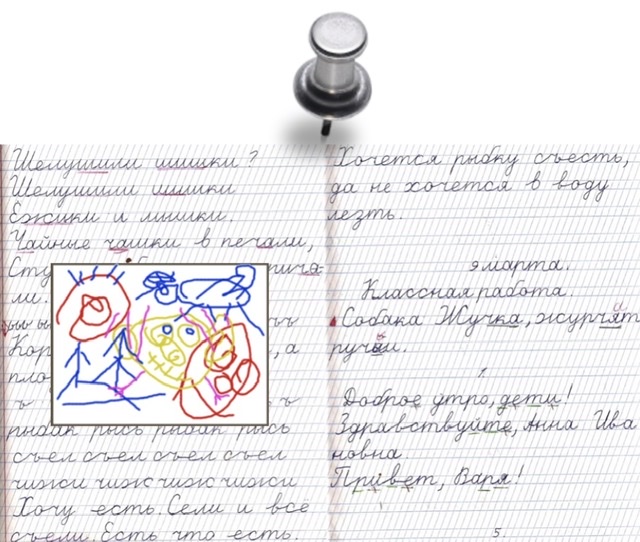 Шелушили шишки?
Шелушили шишки
Ёжики и мышки.
Чайные чашки в печали,
ли.
а
рыбак рысь рыбак рысь
съел съел съел съел
чижи чиж чиж чижи
Хочу есть. Сели и всё
съели. Есть что есть.
Хочется рыбку съесть,
да не хочется в воду
лезть.
9 марта.
Классная работа.
Собака Жучка, журчат
ручьи.
Доброе утро, дети!
Здравствуйте, Анна Ива
новна.
Привет, Варя!
5.